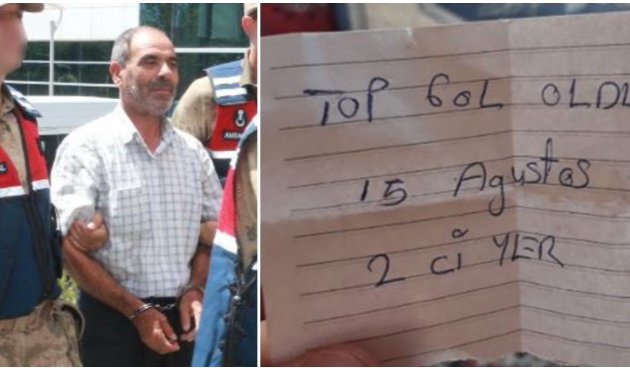 TOP GOL OLDU
15 Agustos
2 Ci YER